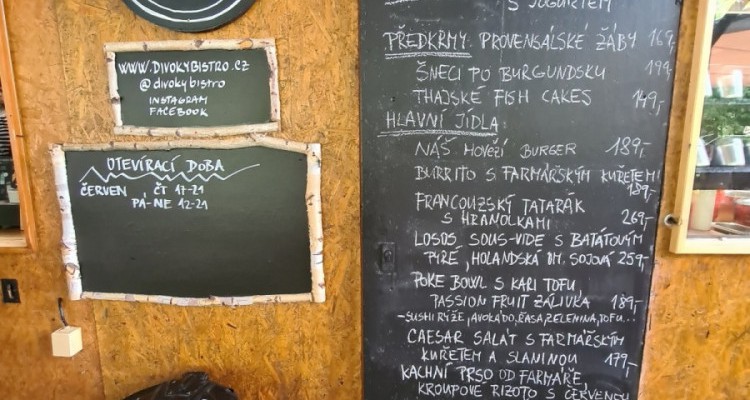 WWW.DIVOKYBISTRO.CZ
@divokybistro
INSTAGRAM
FACEBOOK
OTEVÍRACÍ DOBA
ČERVEN ČT 17-21
PÁ-NE 12-21
S JOGURTEM
PŘEDKRMY PROVENSÁLSKÉ ŽÁBY 169,-
ŠNECI PO BURGUNDSKU 199,-
THAJSKÉ FISH CAKES 149,-
HLAVNÍ JÍDLA:
NÁŠ HOVĚZÍ BURGER 189,-
BURRITO S FARMÁŘSKÝM KUŘETEM
189,-
FRANCOUZSKÝ TATARÁK
S HRANOLKAMI 269,-
LOSOS SOUS-VIDE S BATÁTOVÝM
PYRÉ, HOLANDSKÁ OM. SOJOVÁ 259,-
POKE BOWL S KARI TOFU,
PASSION FRUIT ZÁLIVKA 189,-
-SUSHI RÝŽE, AVOKÁDO, ŘASA, ZELENINA, TOFU...
CAESAR SALÁT S FARMÁŘSKÝM
KUŘETEM A SLANINOU 179,-
KACHNÍ PRSO OD FARMÁŘE,
KROUPOVÉ RIZOTO S ČERVENOU